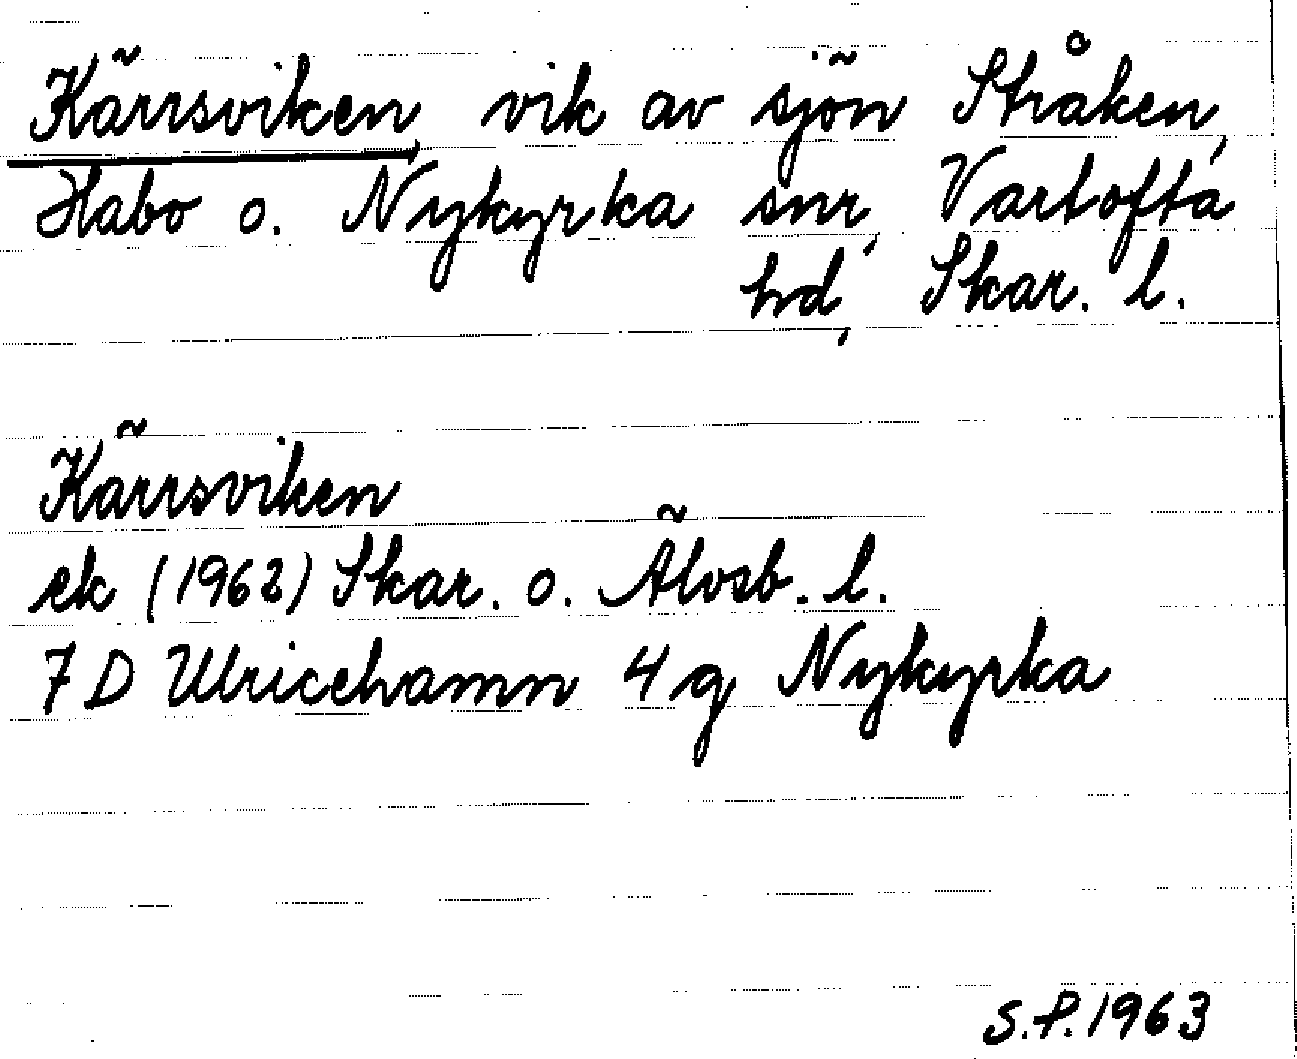 Kärrsviken, vik av sjön Stråken,
Habo o. Nykyrka snr, Vartofta
hd, Skar. l.
Kärrsviken
ek (1962) Skar. o. Älvsb. l.
7 D Ulricehamn 4 g Nykyrka
S.P. 1963